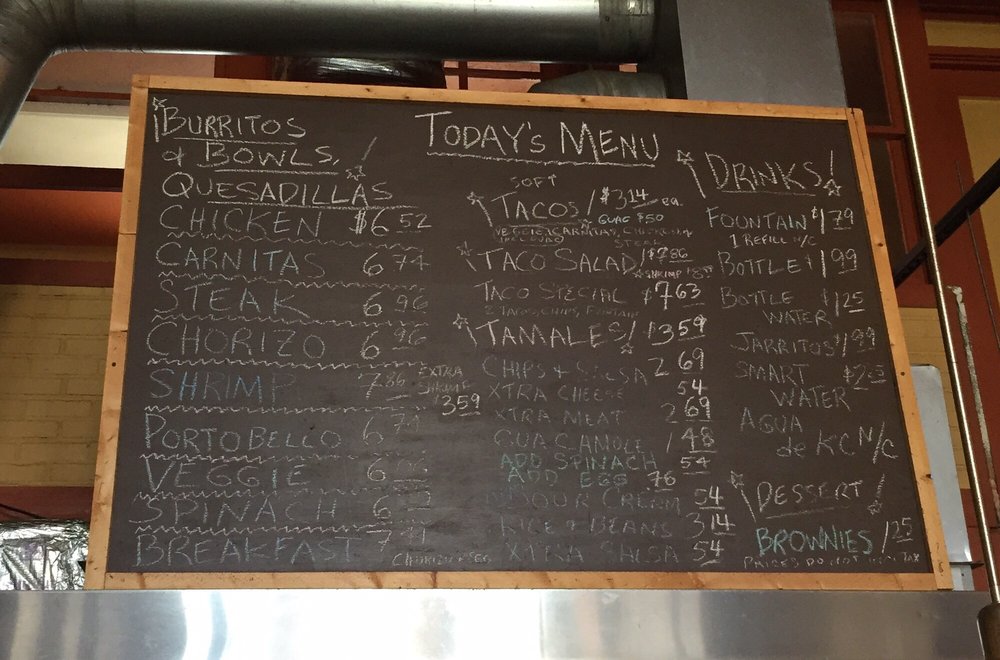 BURRITOS
& BOWLS,
QUESADILLAS
CHICKEN $6 52
CARNITAS 6 74
STEAK 6 96
CHORIZO 6 96
SHRIMP 7.86
EXTRA
SHRIMP
$3 59
PORTOBELLO 6 74
VEGGIE 6
SPINACH 6
BREAKFAST 7
CHORIZO & EGG
TODAY'S MENU
SOFT
TACOS! $3.14 ea.
GUAC $.50
VEGGIE, CARNITAS, CHICKEN &
STEAK
TACO SALAD! $7.86
SHRIMP
TACO SPECIAL $7 63
2 TACOS, CHIPS, FOUNTAIN
TAMALES! $3 59
CHIPS & SALSA 2 69
XTRA CHEESE 54
XTRA MEAT 2 69
GUACAMOLE 1 48
ADD SPINACH 54
ADD EGG .76
SOUR CREAM 54
RICE & BEANS 3 14
XTRA SALSA 54
DRINKS!
FOUNTAIN $1 79
1 REFILL N/C
BOTTLE $1 99
BOTTLE $1 25
WATER
JARRITOS $1 99
SMART
WATER
AGUA
de KC N/C
DESSERT!
BROWNIES 1 25
PRICES DO NOT TAX